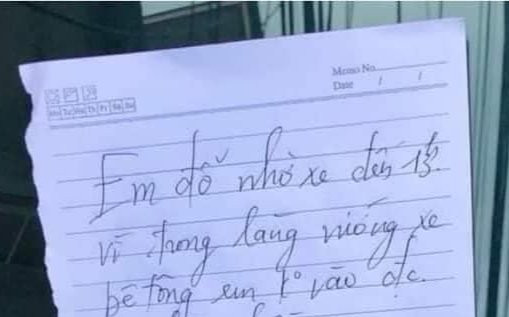 Memo No.
Date / /
Mo Tu We Th Fr Sa Su
Em đỗ nhờ xe đến
vì trong làng vướng xe
bê tông em k° vào đc.